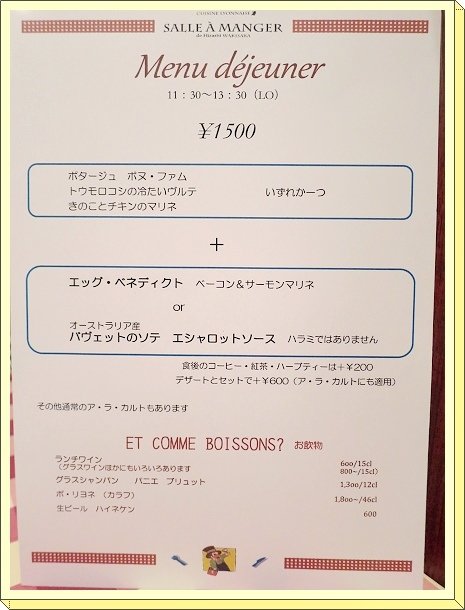 CUISINE LYONNAISE
SALLE À MANGER
de Hizashi WAKISAKA
Menu déjeuner
11：30～13：30（LO）
¥1500
ポタージュ　ボヌ・ファム
トウモロコシの冷たいヴルテ　いずれか一つ
きのことチキンのマリネ
＋
エッグ・ベネディクト　ベーコン＆サーモンマリネ
or
オーストラリア産
バヴェットのソテ　エシャロットソース　ハラミではありません
食後のコーヒー・紅茶・ハーブティーは＋￥200
デザートとセットで＋￥600（ア・ラ・カルトにも適用）
その他通常のア・ラ・カルトもあります
ET COMME BOISSONS?　お飲物
ランチワイン　600/15cl
（グラスワインほかにもいろいろあります　800～/15cl）
グラスシャンパン　パニエ　ブリュット　1,300/12cl
ポ・リヨネ （カラフ）　1,800～/46cl
生ビール　ハイネケン　600